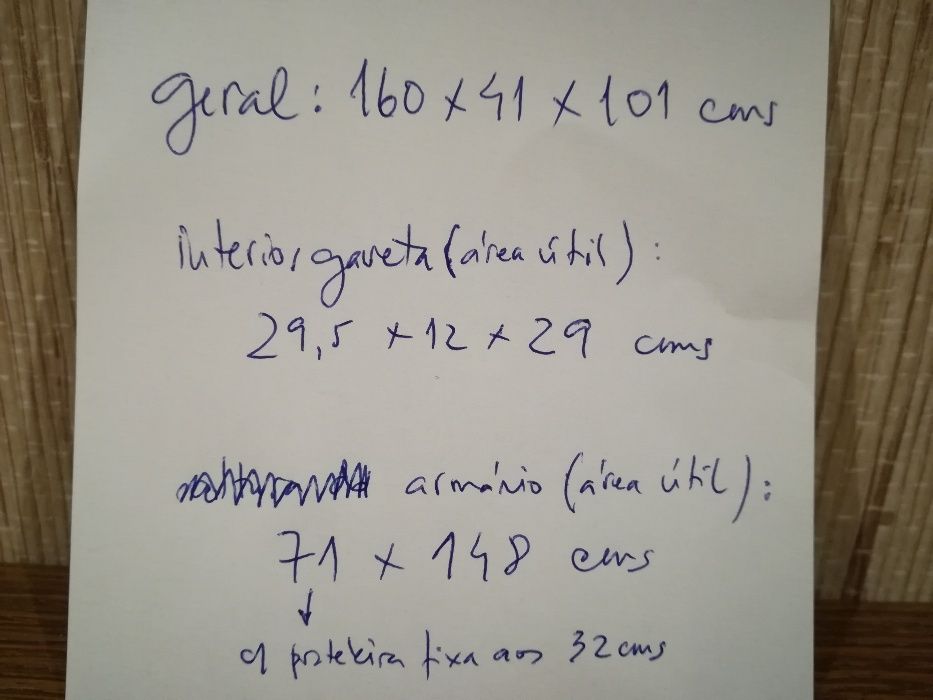 geral: 160 x 41 x 101 cms
interior gaveta (área útil):
29,5 x 12 x 29 cms
armário (área útil):
71 x 148 cms
↓
c/ prateleira fixa aos 32 cms